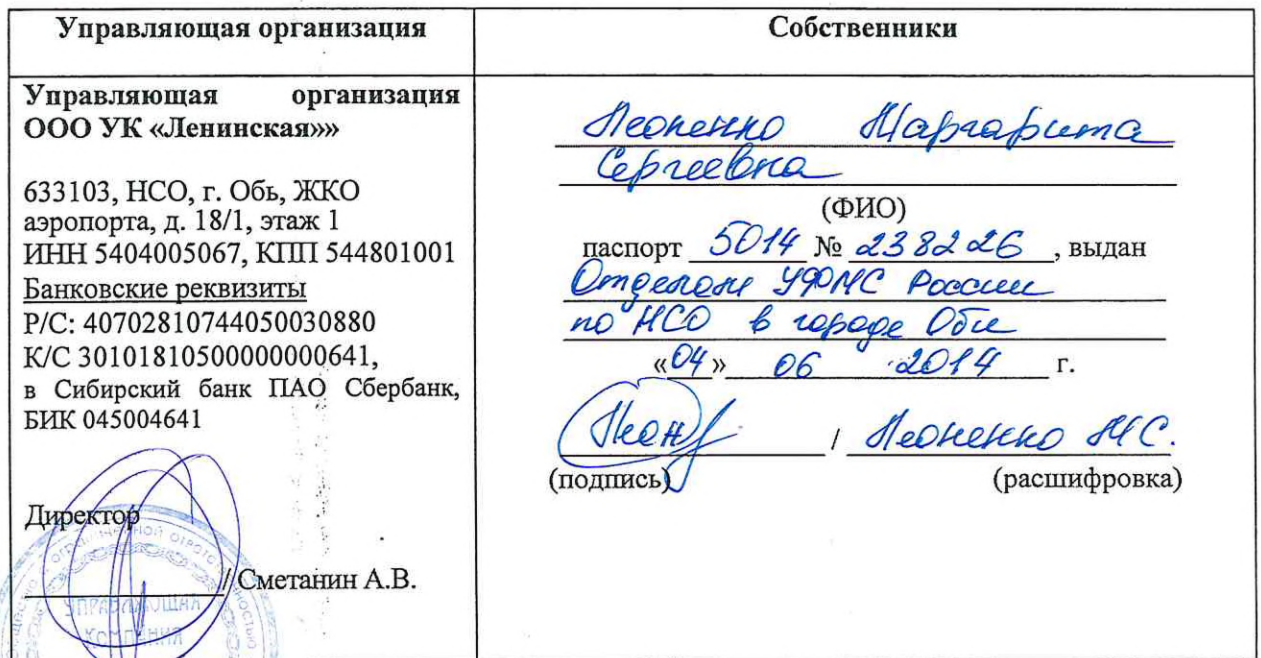 Управляющая организация
Собственники
Управляющая организация
ООО УК «Ленинская»»
633103, НСО, г. Обь, ЖКО
аэропорта, д. 18/1, этаж 1
ИНН 5404005067, КПП 544801001
Банковские реквизиты
Р/С: 40702810744050030880
К/С 30101810500000000641,
в Сибирский банк ПАО Сбербанк,
БИК 045004641
Директор
/ Сметанин А.В.
УПРАВЛЯЮЩАЯ
КОМПАНИЯ
Леоненко Маргарита
Сергеевна
(ФИО)
паспорт 5014 № 238226, выдан
Отделом УФМС России
по НСО в городе Оби
«04» 06 2014 г.
Леон / Леоненко М.С.
(подпись) (расшифровка)